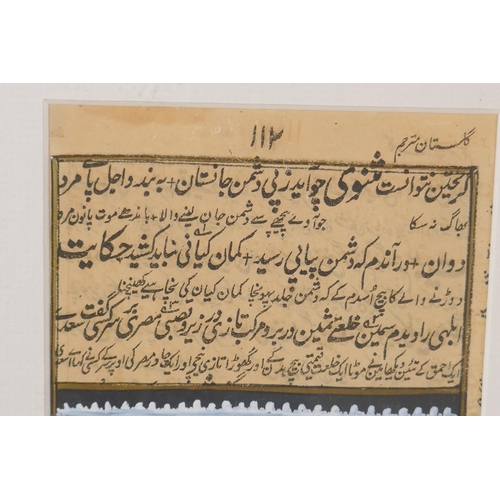 ۱۱۲
گلستان مترجم
گریختن نتوانست مثنوی چو آید ز پی دشمن جانستان + به بندد اجل پای مرد
بھاگ نہ سکا جو آوے پیچھے سے دشمن جان لینے والا + باندھے موت پانوں مرد
دوان + در آندم که دشمن پیاپی رسید + کمان کیانی نباید کشید حکایت
دوڑنے والے کا بیچ اسدم کے کہ دشمن جلد پہونچا کمان کیان کی نچاہیے کھینچنا
ابلهی را دیدم سمین خلعتی ثمین در بر و مرکب تازی در زیر و قصبی مصری بر سر کسی گفت سعدی
ایک احمق کے تئین دیکھا مین نے موٹا ایک خلعت قیمتی بیچ بدن کے اور گھوڑا تازی نیچے اور ایک چادر مصر کی اوپر سر کے کسی نے کہا اے سعدی